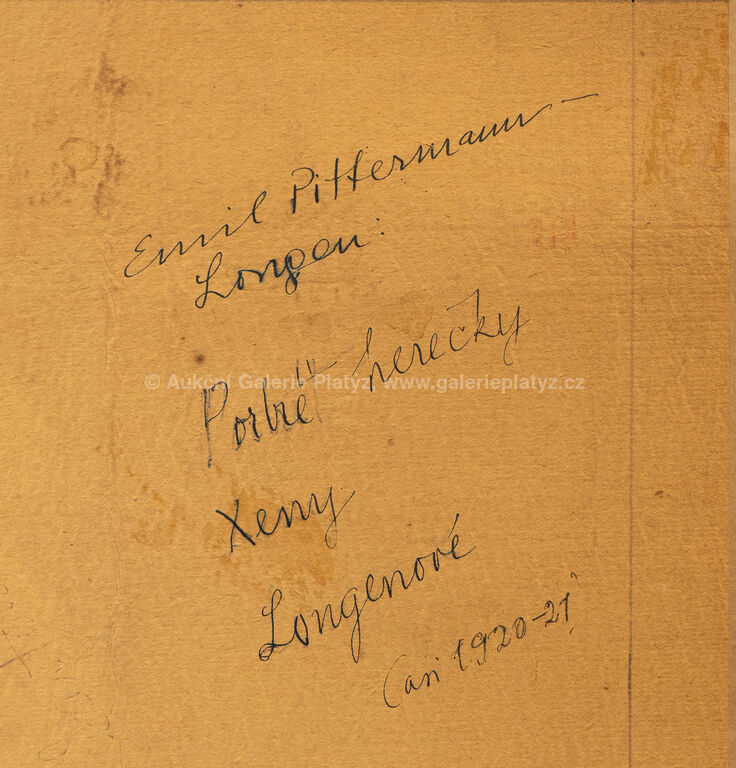 Emil Pittermann –
Longen:
Portrét herečky
© Aukční Galerie Platyz, www.galerieplatyz.cz
Xeny
Longenové
(asi 1920-21)